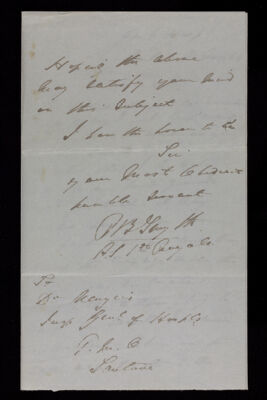 Hoping the above
may satisfy your mind
on this subject
I have the honor to be
Sir
your most Obedient
humble Servant
To
Dr Menzies
Insp Genl of Hospls